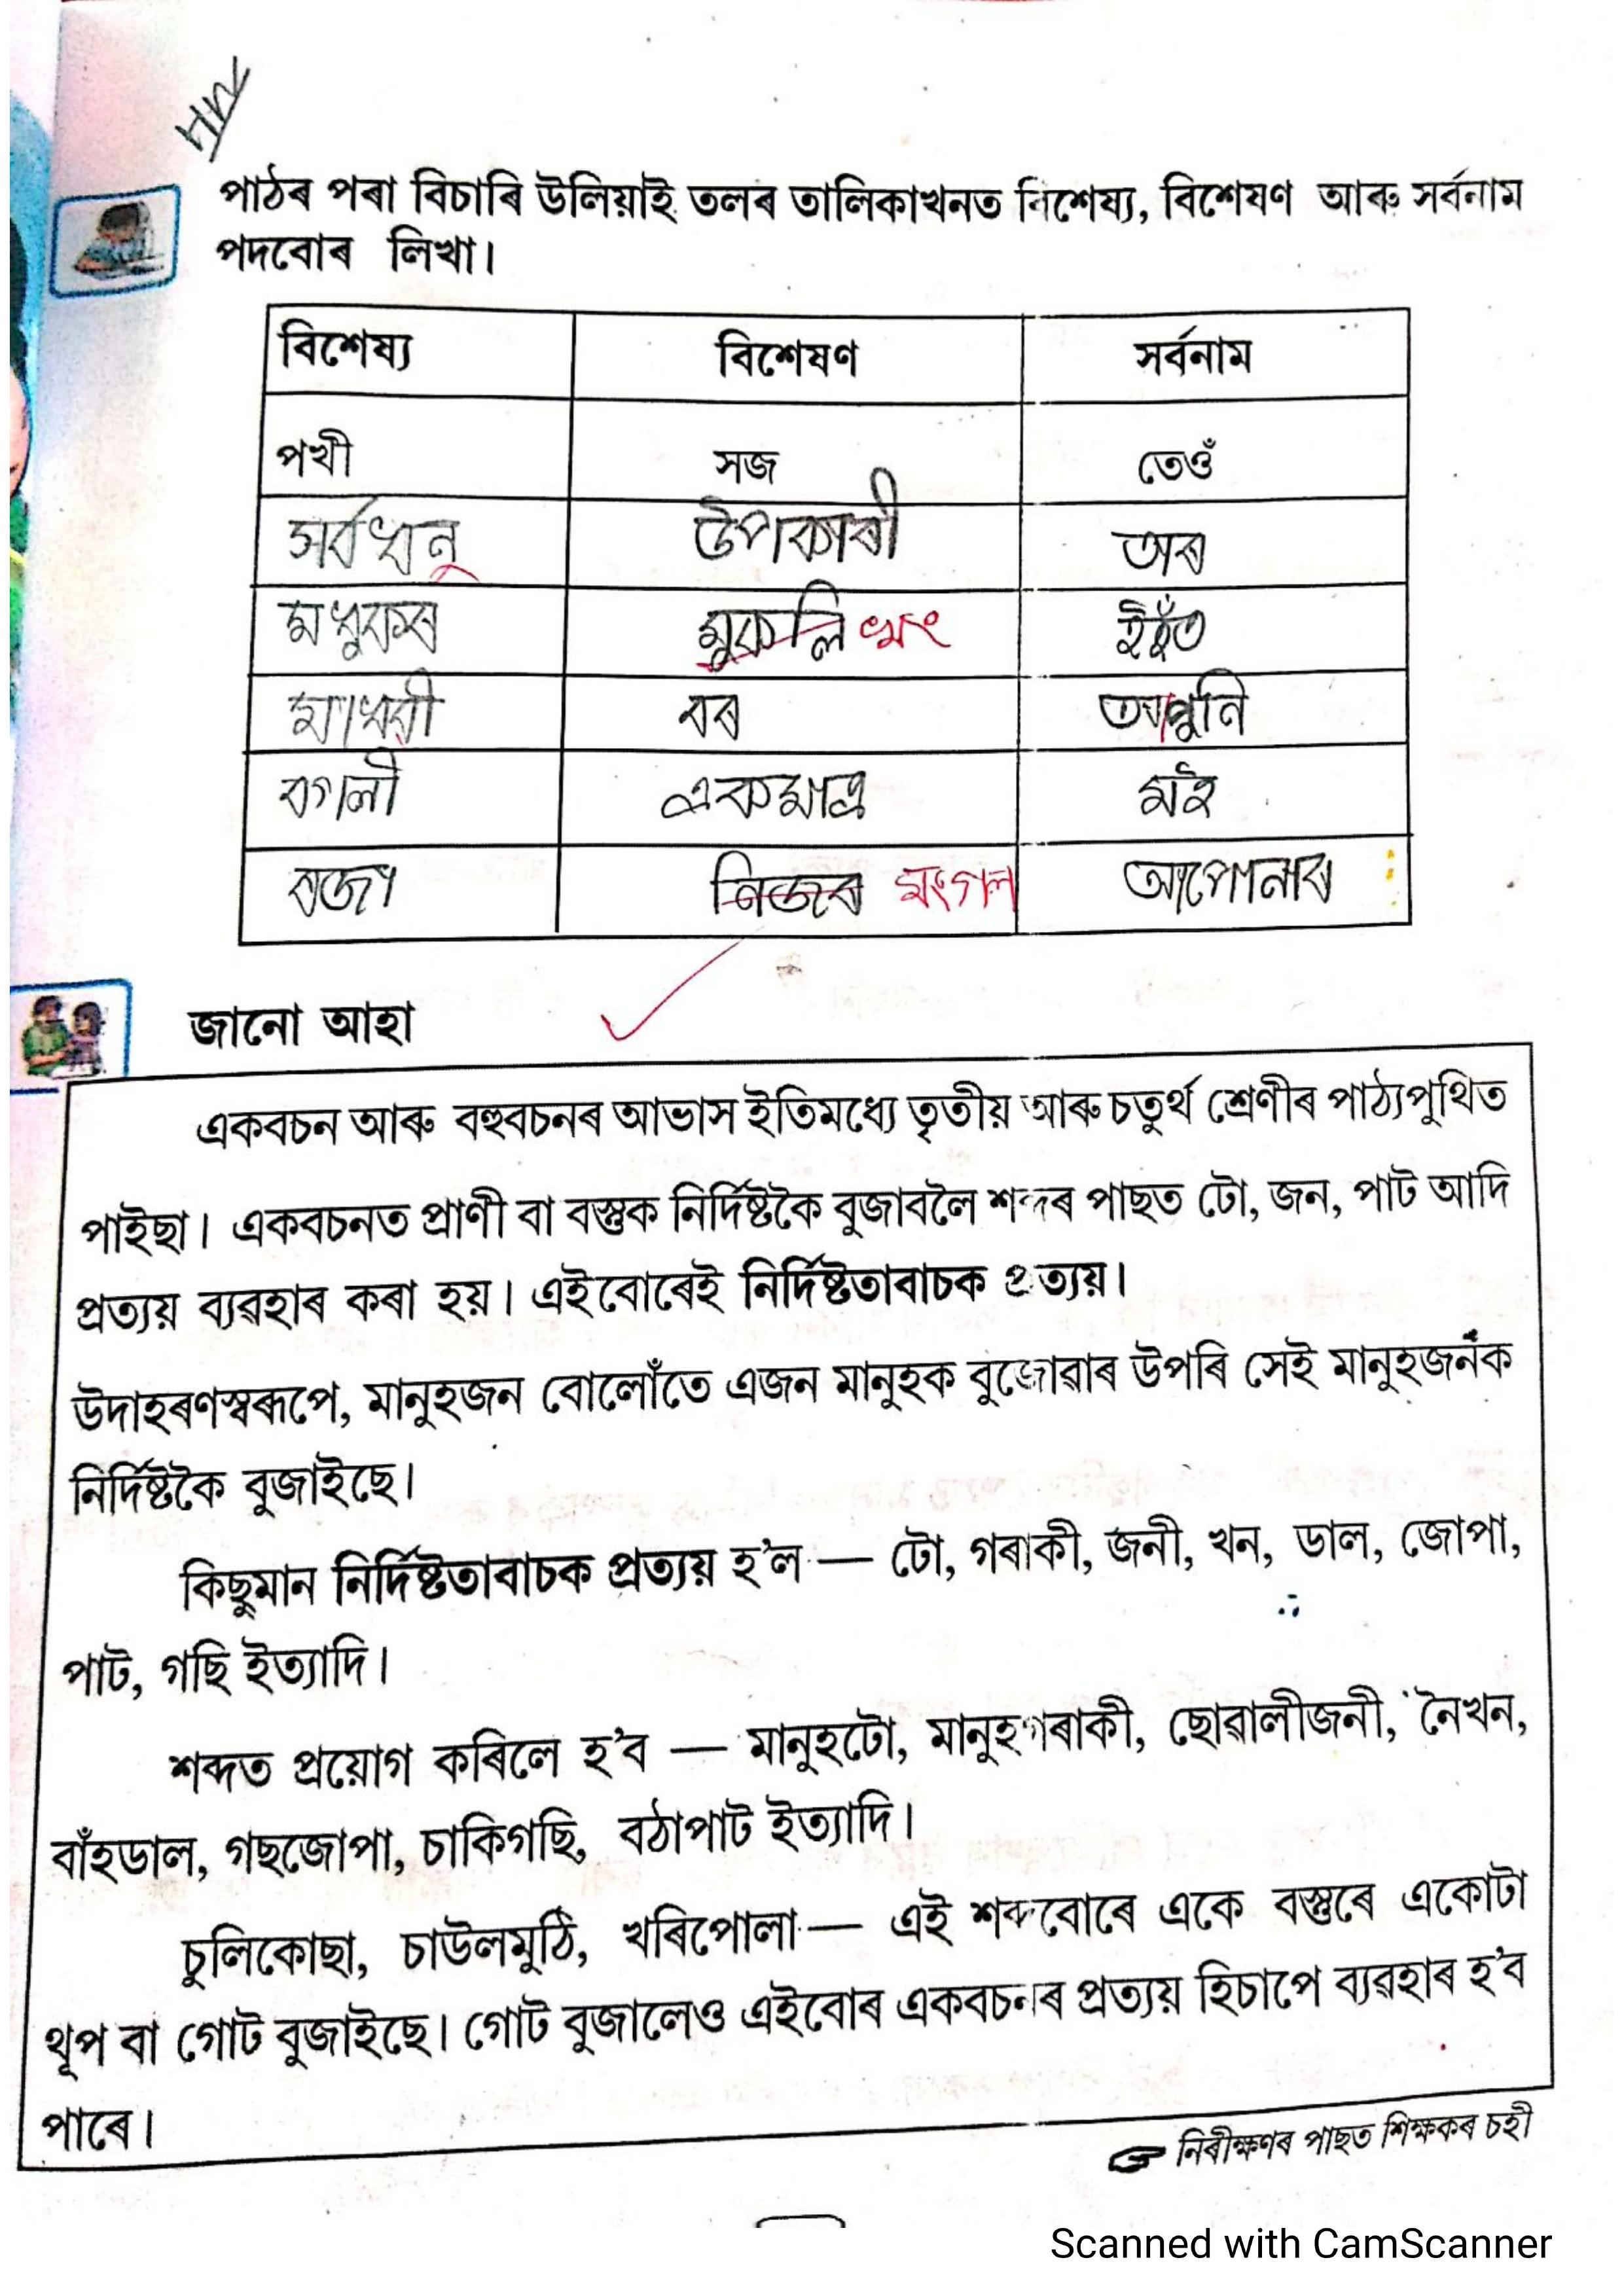 HW
পাঠৰ পৰা বিচাৰি উলিয়াই তলৰ তালিকাখনত বিশেষ্য, বিশেষণ আৰু সৰ্বনাম
পদবোৰ লিখা।
বিশেষ্য বিশেষণ সৰ্বনাম
পখী সজ তেওঁ
সৰ্বধানু উপকাৰী অৰ
মধুকৰ মুকলি খং ইহঁত
মাধৱী বৰ আপুনি
বগলী একমাত্ৰ মই
ৰজা নিজৰ মংগল আপোনাৰ
জানো আহা
একবচন আৰু বহুবচনৰ আভাস ইতিমধ্যে তৃতীয় আৰু চতুৰ্থ শ্ৰেণীৰ পাঠ্যপুথিত
পাইছা। একবচনত প্ৰাণী বা বস্তুক নিৰ্দিষ্টকৈ বুজাবলৈ শব্দৰ পাছত টো, জন, পাট আদি
প্ৰত্যয় ব্যৱহাৰ কৰা হয়। এইবোৰেই নিৰ্দিষ্টতাবাচক প্ৰত্যয়।
উদাহৰণস্বৰূপে, মানুহজন বোলোঁতে এজন মানুহক বুজোৱাৰ উপৰি সেই মানুহজনক
নিৰ্দিষ্টকৈ বুজাইছে।
কিছুমান নিৰ্দিষ্টতাবাচক প্ৰত্যয় হ’ল — টো, গৰাকী, জনী, খন, ডাল, জোপা,
পাট, গছি ইত্যাদি।
শব্দত প্ৰয়োগ কৰিলে হ’ব — মানুহটো, মানুহগৰাকী, ছোৱালীজনী, নৈখন,
বাঁহডাল, গছজোপা, চাকিগছি, বঠাপাট ইত্যাদি।
চুলিকোছা, চাউলমুঠি, খৰিপোলা — এই শব্দবোৰে একে বস্তুৰে একোটা
থূপ বা গোট বুজাইছে। গোট বুজালেও এইবোৰ একবচনৰ প্ৰত্যয় হিচাপে ব্যৱহাৰ হ’ব
পাৰে।
নিৰীক্ষণৰ পাছত শিক্ষকৰ চহী
Scanned with CamScanner